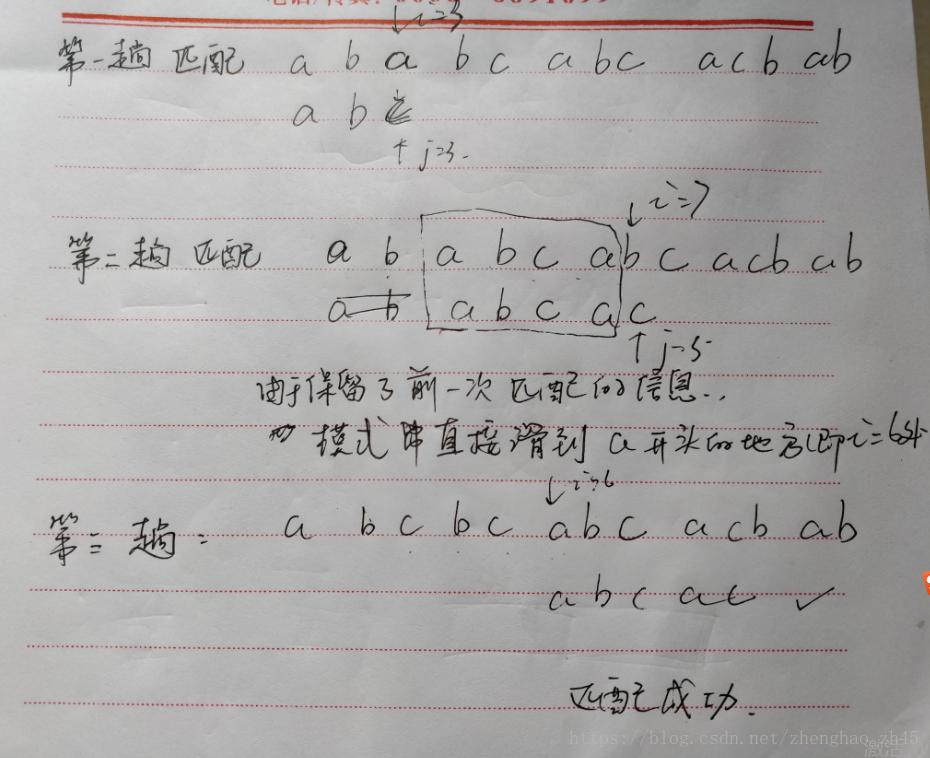 i=3
第一趟 匹配 a b a b c a b c a c b a b
a b
↑ j=3.
↓ i=7
第二趟 匹配 a b a b c a b c a c b a b
a b a b c a c
↑ j=5
由于保留了前一次匹配的信息..
模式串直接滑到 a 开头的地方 即 i=6
↓ i=6
第三趟: a b c b c a b c a c b a b
a b c a c ✓
匹配成功.
https://blog.csdn.net/zhenghao_zh45
激活